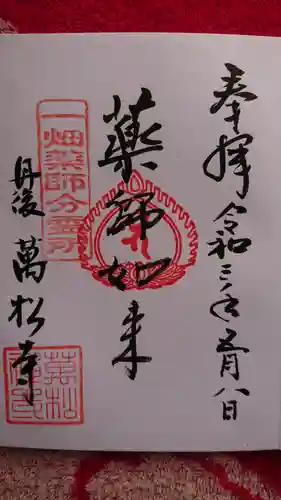 奉拝 令和三年五月八日
薬師如来
一畑薬師分霊所
丹後 萬松寺
萬松禅寺